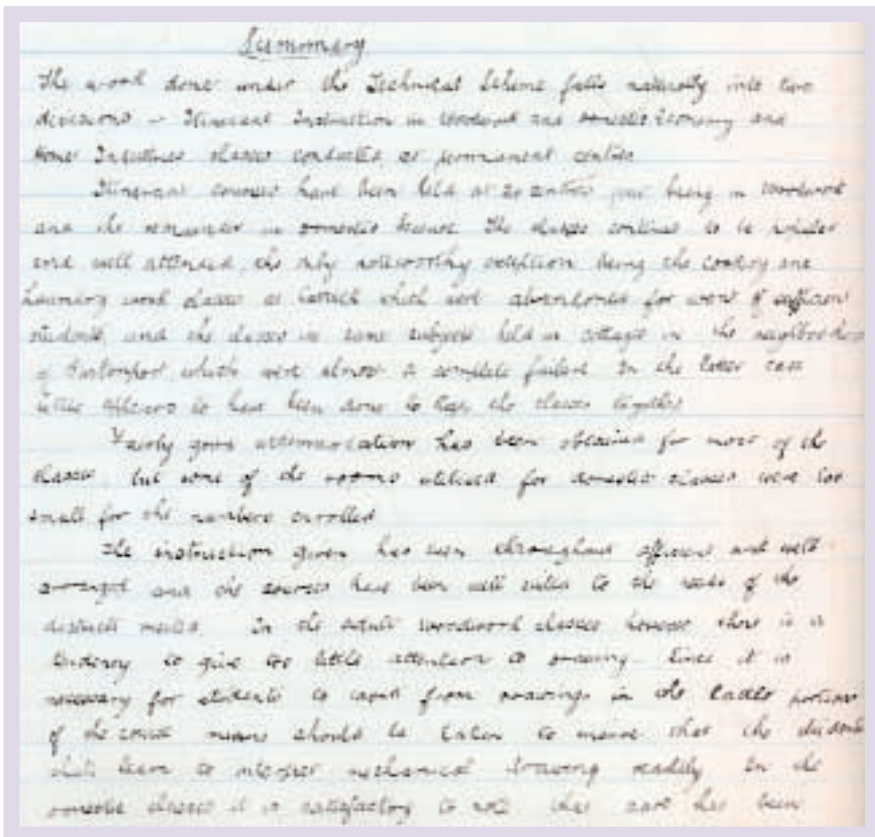 Summary
The work done under the Technical Scheme falls naturally into two
divisions - Itinerant Instruction in Woodwork and Domestic Economy and
Home Industries classes conducted at permanent centres
Itinerant courses have been held at 20 centres four being in Woodwork
and the remainder in Domestic Science. The classes continue to be popular
and well attended, the only noteworthy exception being the cookery and
Laundry work classes at which were abandoned for want of sufficient
students, and the classes in same subjects held in cottage in the neighborhood
of which were almost a complete failure In the latter case
little appears to have been done to keep the classes together
Fairly good accommodation has been obtained for most of the
classes but some of the rooms utilised for domestic classes were too
small for the numbers enrolled
The instruction given has been throughout efficient and well
arranged and the courses have been well suited to the needs of the
districts In the woodwork classes however there is a
tendency to give too little attention to drawing. Since it is
necessary for students to work from drawings in the portions
of the course means should be taken to ensure that the students
shall learn to interpret mechanical drawing readily In the
domestic classes it is satisfactory to note that care has been